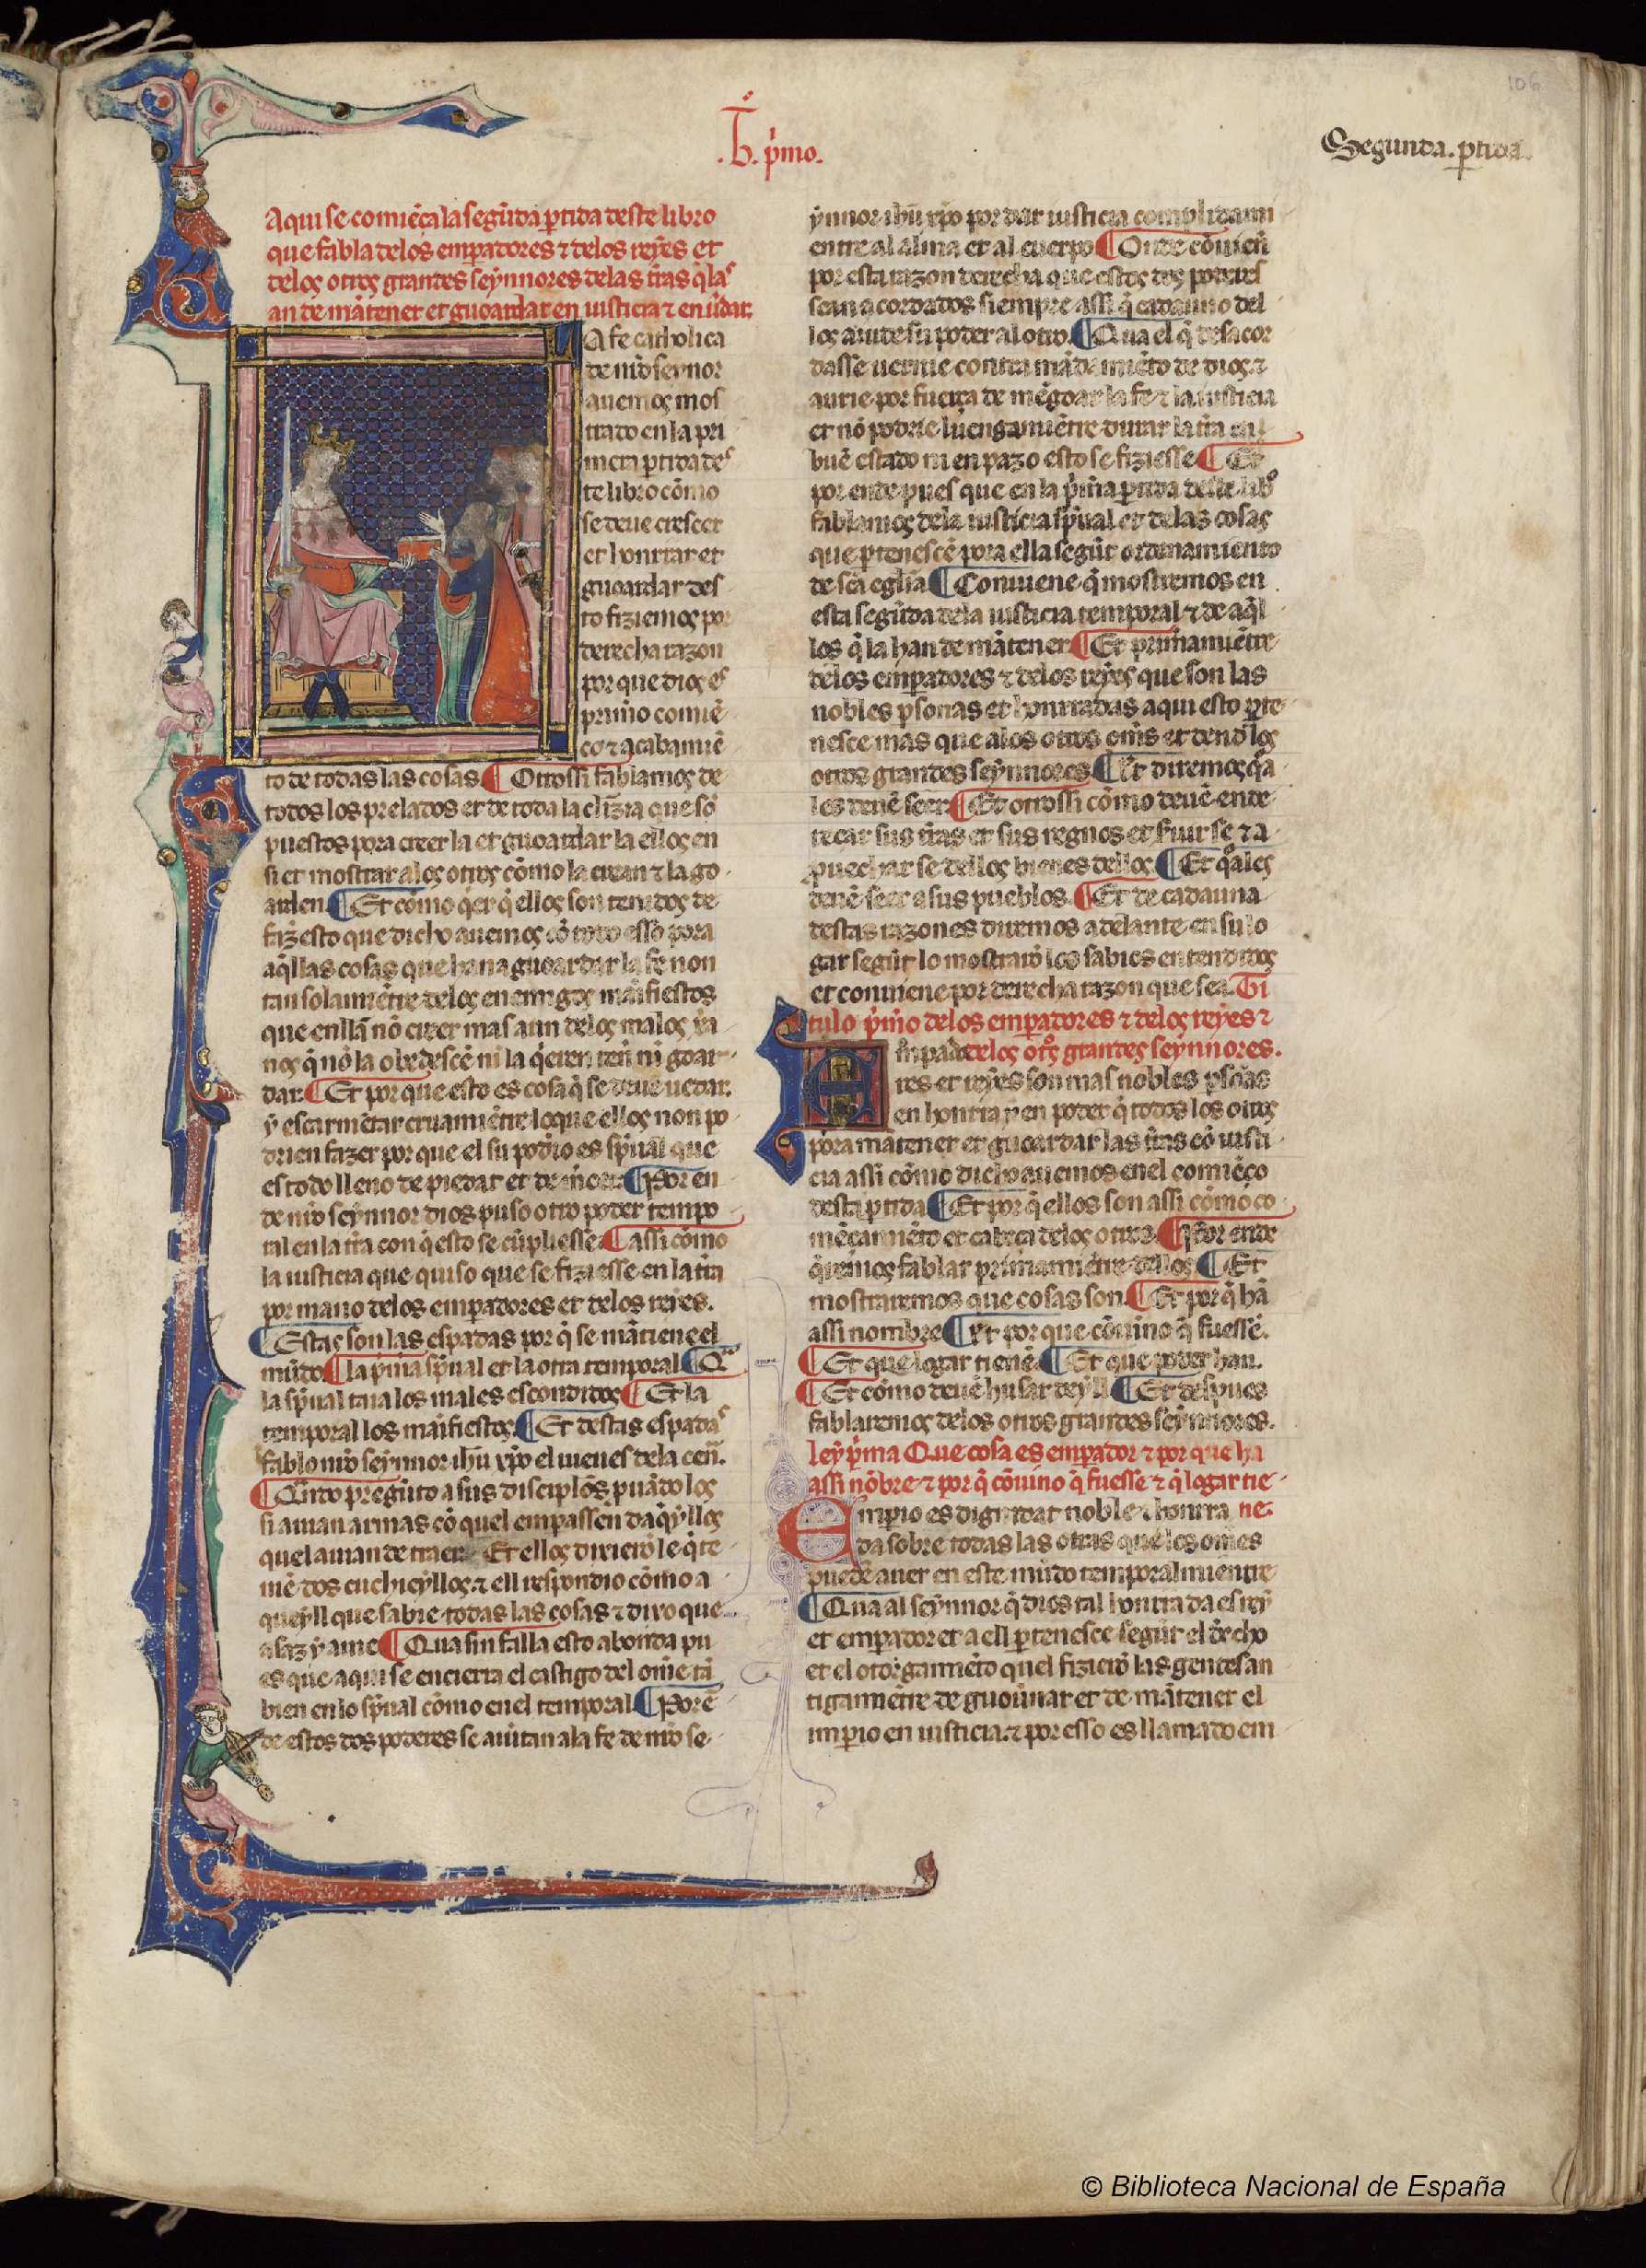 106
.T͡i. p͛mo.
Segunda. ꝑtida.
Aqui se comiẽça la segũda ꝑtida deste libro
que fabla delos emꝑadores ⁊ delos reyes et
delos otros grandes seynnores delas tr̃as q̃ las
an de mãtener et guoardar en iusticia ⁊ en ũdat.
A fe catholica
de nr̃o seynor
auemos mos
trado en la pri
mera ꝑtida des
te libro cõmo
se deue crescer
et honrrar et
guoardar des
to fiziemos por
derecha razon
por que dios es
prim̃o comiẽ
ço ⁊ acabamiẽ
to de todas las cosas ¶ Otrossi fablamos de
todos los prelados et de toda la cl̃izia que sõ
puestos pora creer la et guoardar la ellos en
si et mostrar alos otros cõmo la crean ⁊ la go
arden ¶ Et cõmo q̃er q̃ ellos son tenidos de
faz esto que dicho auemos cõ todo esso pora
aq̃llas cosas que han a guoardar la fe non
tan solamiẽtre delos enemigos mãifiestos
que enlla nõ creer mas aun delos malos xr̃ia
nos q̃ nõ la obedescẽ ni la q̃ieren teñ ni goar
dar. ¶ Et por que esto es cosa q̃ se deue uedar.
y escarmẽtar cruamiẽtre lo que ellos non po
drien fazer por que el su podr̃io es sp̃ual que
es todo lleno de piedat et de m̃ce ¶ Por en
de nr̃o seynnor dios puso otro poder tempo
ral en la tr̃a con q̃ esto se cũpliesse ¶ assi cõmo
la iusticia que quiso que se fiziesse en la tr̃a
por mano delos emꝑadores et delos reyes.
¶ Estas son las espadas por q̃ se mãtiene el
mũdo ¶ la p͛ma sp̃ual et la otra temporal ¶ Qͣ
la sp̃ual taia los males escondidos ¶ Et la
temporal los mãifiestos ¶ Et destas espadas
fablo nr̃o seynnor ihũ xp̃o el iueues dela ceñ.
¶ Qũdo pregũto a sus disciplõs puãdo los
si auian armas cõ quel empassen daq̃yllos
quel auian de traer. Et ellos dixierõ le q̃ te
niẽ dos cuchieyllos ⁊ ell respondio cõmo a
queyll que sabie todas las cosas ⁊ dixo que
asaz y auie ¶ Qua sin falla esto abonda pu
es que aqui se encierra el castigo del om̃e tã
bien en lo sp̃ual cõmo en el temporal ¶ Porẽ
de estos dos poderes se aiũtan ala fe de nr̃o se
ynnor ihũ xp̃o por dar iusticia complidami
entre al alma et al cuerpo ¶ Onde cõuieñ
por esta razon derecha que estos dos poderes
sean acordados siempre assi q̃ cadauno del
los aiude su poder al otro. ¶ Qua el q̃ desacor
dasse uernie contra mãdamiẽto de dios ⁊
aurie por fuerça de mẽgoar la fe ⁊ la iusticia
et nõ podrie luengamiẽtre durar la tr̃a en
buẽ estado ni en paz o esto se fiziesse ¶ Et
por ende pues que en la p͛m̃a ꝑtida deste libº
fablamos dela iusticia sp̃ual et delas cosas
que ꝑtenescẽ pora ella segũt ordinamiento
de sc̃a egl̃ia ¶ Conuiene q̃ mostremos en
esta segũda dela iusticia temporal ⁊ de aq̃l
los q̃ la han de mãtener ¶ Et prim̃amiẽtre
delos emꝑadores ⁊ delos reyes que son las
nobles ꝑsonas et honrradas a qui esto ꝑte
nesce mas que alos otros om̃s et de nd̃ los
otros grandes seynnores ¶ Et diremos q̃a
les deuẽ seer ¶ Et otrossi cõmo deuẽ ende
reçar sus tr̃as et sus regnos et s̃uir se ⁊ a
puechar se dellos bienes dellos ¶ Et q̃ales
deuẽ seer a sus pueblos. ¶ Et de cadauna
destas razones diremos adelante en su lo
gar segũt lo mostrarõ los sabios entendidos
et conuiene por derecha razon que sea. Ti
tulo p͛m̃o delos emꝑadores ⁊ delos reyes ⁊
delos otºs grandes seynnores.
Emꝑado
res et reyes son mas nobles ꝑsõas
en honrra y en poder q̃ todos los otros
pora mãtener et guoardar las tr̃as cõ iusti
cia assi cõmo dicho auemos en el comiẽço
desta ꝑtida ¶ Et por q̃ ellos son assi cõmo co
mẽçamiẽto et cabeça delos otros ¶ Por ende
q̃remos fablar prim̃amiẽtre dellos ¶ Et
mostraremos que cosas son. ¶ Et por q̃ hã
assi nombre ¶ Et por que cõuino q̃ fuessẽ.
¶ Et que logar tienẽ ¶ Et que poder han.
¶ Et cõmo deuẽ husar deyll ¶ Et despues
fablaremos delos otros grandes seynnores.
ley p͛ma Que cosa es emꝑador ⁊ por que ha
assi nõbre ⁊ por q̃ cõuino q̃ fuesse ⁊ q̃ logar tie
ne.
Emꝑio es dignidat noble ⁊ honrra
da sobre todas las otras que los om̃es
puedẽ auer en este mũdo temporalmientre
¶ Qua al seynnor q̃ dios tal honrra da es rey
et emꝑador et a ell ꝑtenesce segũt el dr̃echo
et el otorgamiẽto quel fizierõ las gentes an
tigamiẽtre de guoũnar et de mãtener el
imꝑio en iusticia ⁊ por esso es llamado em
© Biblioteca Nacional de España